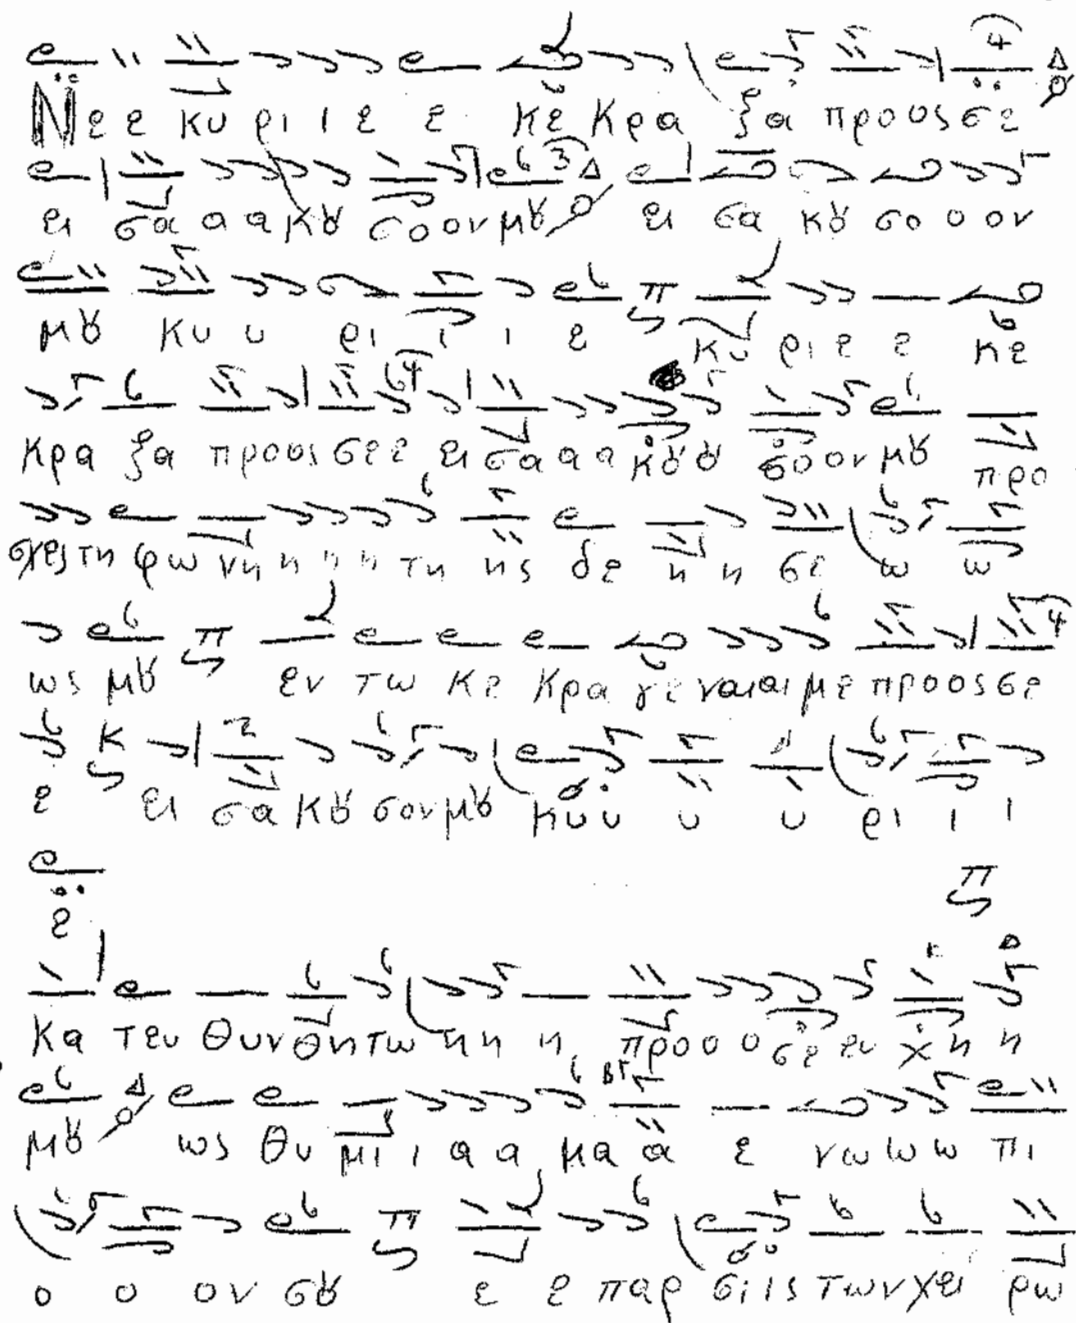 Νε ε κυ ρι ι ε ε κε κρα ξα προ ος σε
ει σα α α κȣ σο ον μȣ ει σα κȣ σο ο ον
μȣ κυ υ ρι ι ι ε κυ ρι ε ε κε
κρα ξα προ ος σε ε ει σα α α κȣ ȣ σο ον μȣ προ
σχες τη φω νη η η η τη ης δε η η σε ω ω
ως μȣ εν τω κε κρα γε ναι αι με προ ος σε
ε ει σα κȣ σον μȣ κυ υ υ υ ρι ι ι
ε
Κα τευ θυν θη τω η η η προ ο ο σε ευ χη η
μȣ ως θυ μι ι α α μα α ε νω ω ω πι
ο ο ον σȣ ε ε παρ σι ις των χει ρω